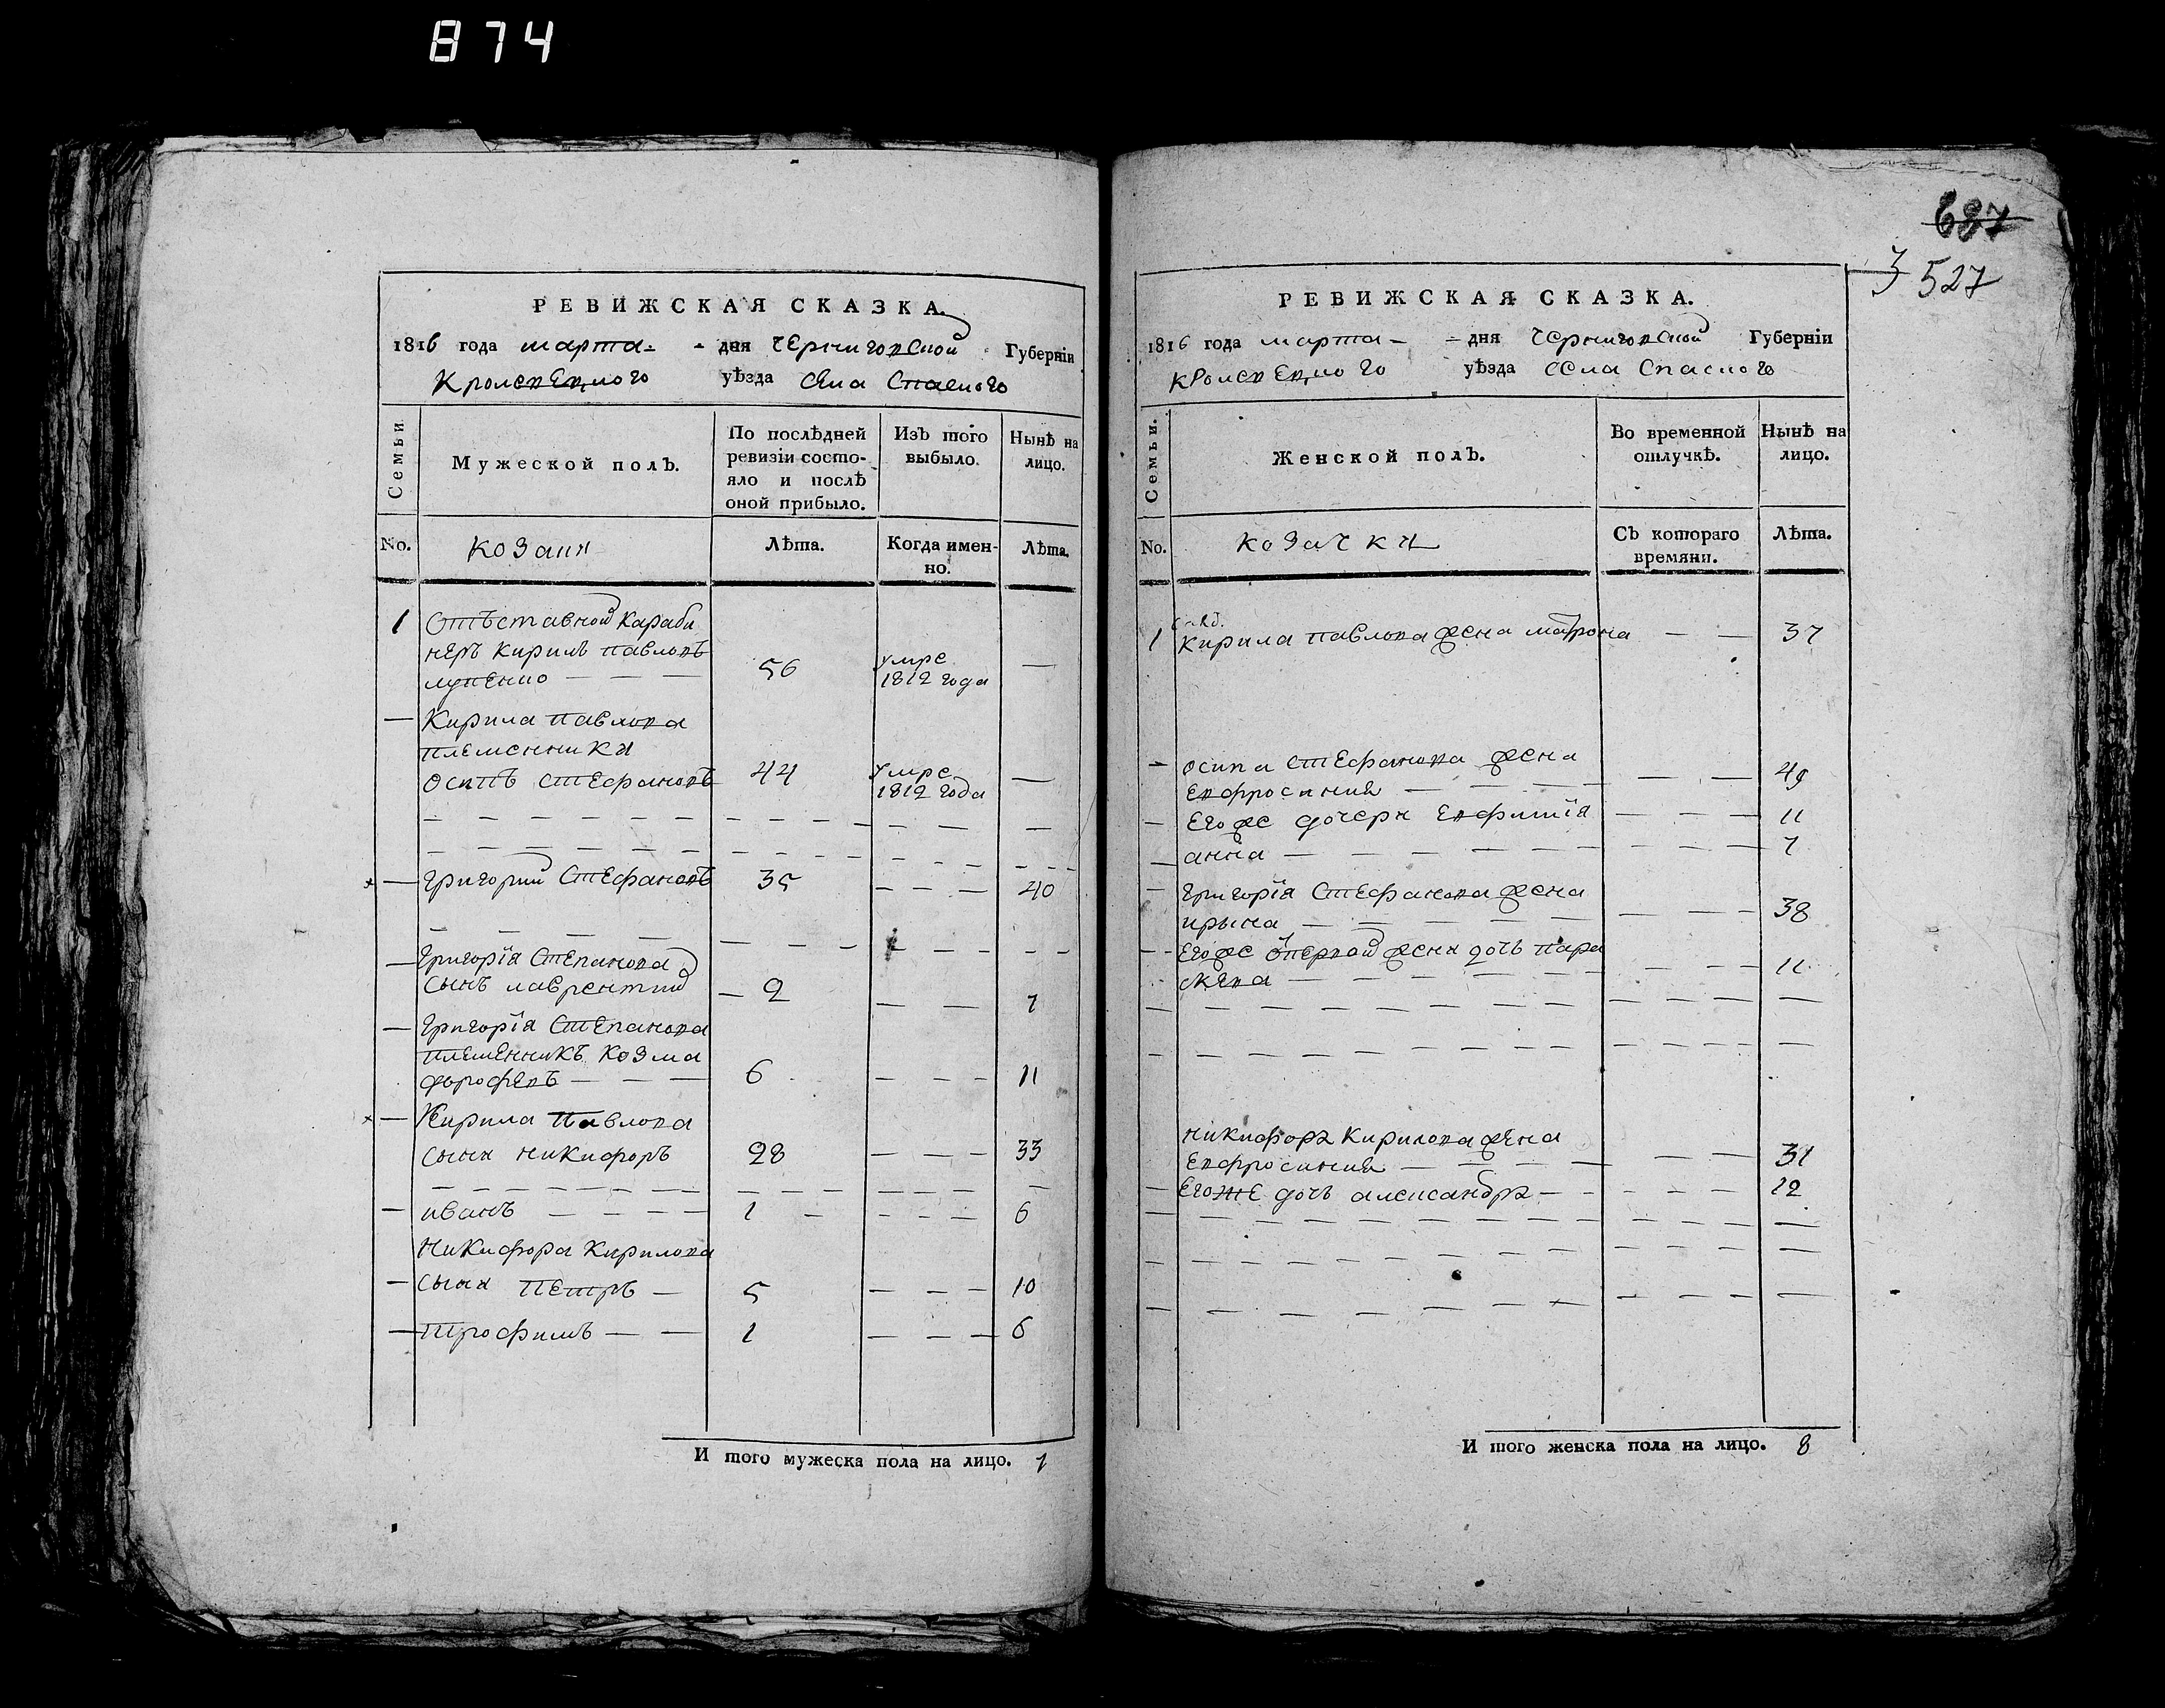 874
РЕВИЖСКАЯ СКАЗКА.
1816 года марта - - дня Черниговской Губерніи
Кролевецкого уѣзда села Спаского
Семьи
Мужеской полъ.
По послѣдней ревизіи состояло и послѣ оной прибыло.
Изъ того выбыло.
Нынѣ на лицо.
No. козаки Лѣта. Когда именно. Лѣта.
1 Отъставной караби
неръ Кирилъ Павловъ
Луценко — — — 56 умре 1812 года —
— Кирила Павлова
племенники
Осипъ Стефановъ 44 умре 1812 года —
— Григорий Стефановъ 35 — — — 40
— Григорія Степанова
сынъ Лаврентий — 2 — — 7
— Григорія Степанова
племенникъ Козма
дорофевъ — — — 6 — — — 11
— Кирила Павлова
сыни Никифоръ 28 — — — 33
— иванъ — — — — 1 — — — — 6
Никифора Кирилова
— сыни Петръ — 5 — — — 10
— Трофимъ — — 1 — — — 6
И того мужеска пола на лицо. 7
687
3 527
РЕВИЖСКАЯ СКАЗКА.
1816 года марта - - дня Черниговской Губерніи
Кролевецкого уѣзда села Спаского
Семьи.
Женской полъ.
Во временной отлучкѣ.
Нынѣ на лицо.
No. козачки Съ котораго времяни. Лѣта.
1 Кирила Павлова жена матрона — — 37
— Осипа Стефанова жена
Евфросиния — — — — — 49
— Его же дочери Евфимія — — — 11
— анна — — — — — — 7
— Григорія Стефанова жена
ирына — — — — — — 38
— Его же первой жени дочь Пара
скева — — — — — — 11
Никифора Кирилова жена
Евфросиния — — — — — 31
— Егоже дочь александра — — — — 12
И того женска пола на лицо. 8